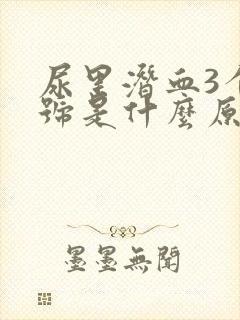 尿里潜血3个
号是什麼原
墨墨無聞